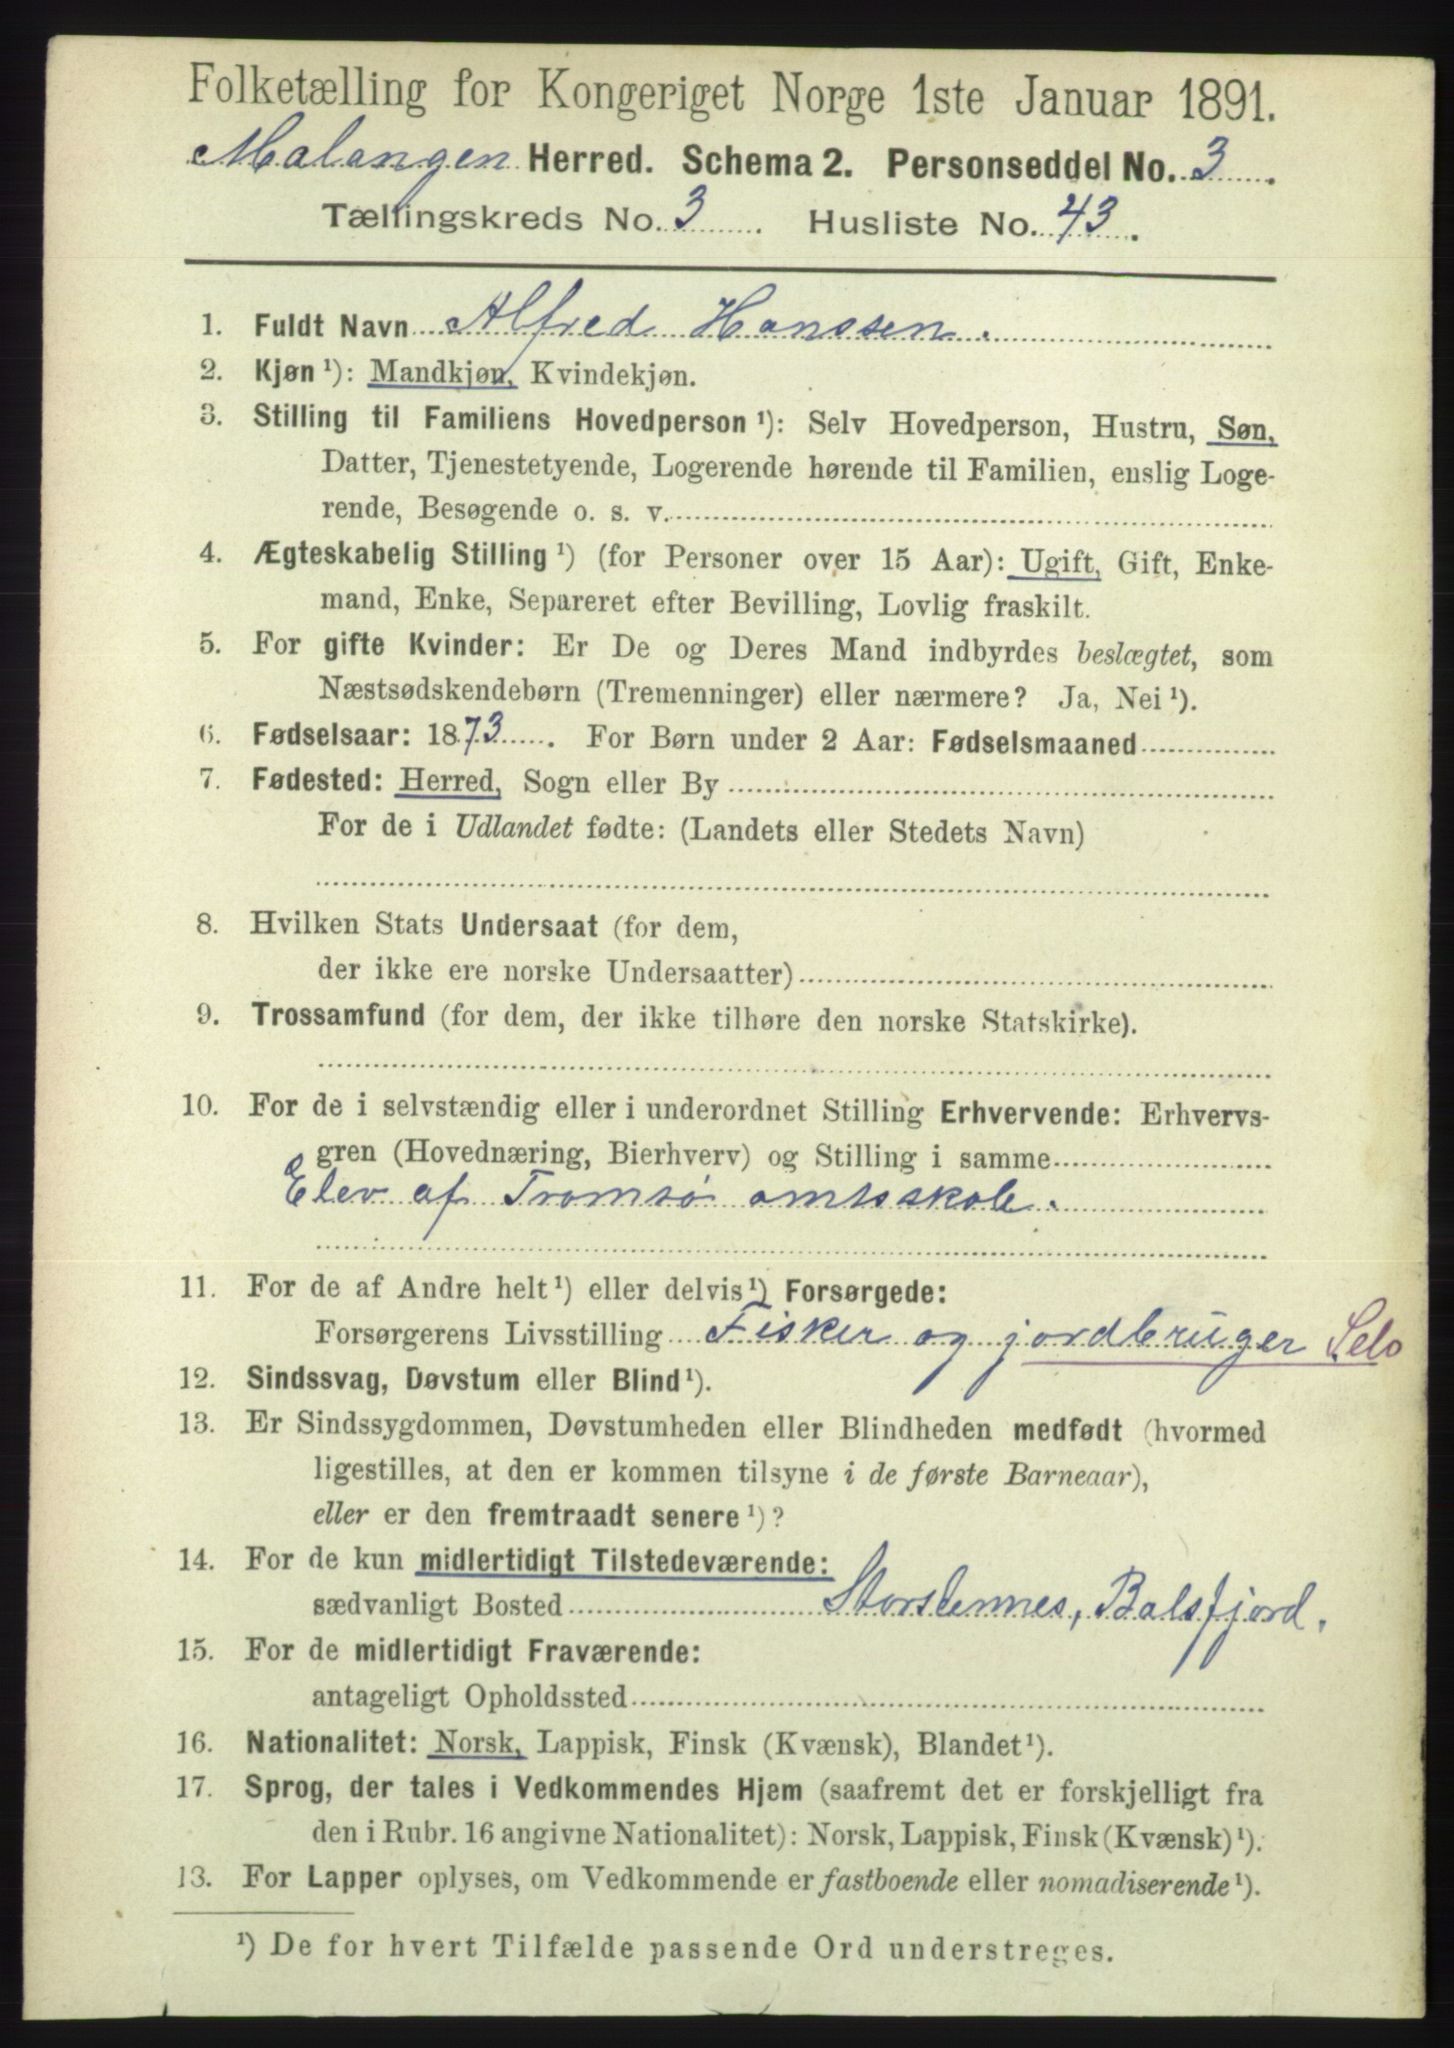 Folketælling for Kongeriget Norge 1ste Januar 1891.
Malangen Herred. Schema 2. Personseddel No. 3
Tællingskreds No. 3 Husliste No. 43.
1. Fuldt Navn Alfred Hanssen.
2. Kjøn ¹): Mandkjøn, Kvindekjøn.
3. Stilling til Familiens Hovedperson ¹): Selv Hovedperson, Hustru, Søn,
Datter, Tjenestetyende, Logerende hørende til Familien, enslig Loge-
rende, Besøgende o. s. v.
4. Ægteskabelig Stilling ¹) (for Personer over 15 Aar): Ugift, Gift, Enke-
mand, Enke, Separeret efter Bevilling, Lovlig fraskilt.
5. For gifte Kvinder: Er De og Deres Mand indbyrdes beslægtet, som
Næstsødskendebørn (Tremenninger) eller nærmere? Ja, Nei ¹).
6. Fødselsaar: 1873. For Børn under 2 Aar: Fødselsmaaned
7. Fødested: Herred, Sogn eller By
For de i Udlandet fødte: (Landets eller Stedets Navn)
8. Hvilken Stats Undersaat (for dem,
der ikke ere norske Undersaatter)
9. Trossamfund (for dem, der ikke tilhøre den norske Statskirke).
10. For de i selvstændig eller i underordnet Stilling Erhvervende: Erhvervs-
gren (Hovednæring, Bierhverv) og Stilling i samme
Elev af Tromsø amtsskole.
11. For de af Andre helt ¹) eller delvis ¹) Forsørgede:
Forsørgerens Livsstilling Fisker og jordbruger Selv
12. Sindssvag, Døvstum eller Blind ¹).
13. Er Sindssygdommen, Døvstumheden eller Blindheden medfødt (hvormed
ligestilles, at den er kommen tilsyne i de første Barneaar),
eller er den fremtraadt senere ¹)?
14. For de kun midlertidigt Tilstedeværende:
sædvanligt Bosted Storstennes, Balsfjord.
15. For de midlertidigt Fraværende:
antageligt Opholdssted
16. Nationalitet: Norsk, Lappisk, Finsk (Kvænsk), Blandet ¹).
17. Sprog, der tales i Vedkommendes Hjem (saafremt det er forskjelligt fra
den i Rubr. 16 angivne Nationalitet): Norsk, Lappisk, Finsk (Kvænsk) ¹).
13. For Lapper oplyses, om Vedkommende er fastboende eller nomadiserende ¹).
¹) De for hvert Tilfælde passende Ord understreges.